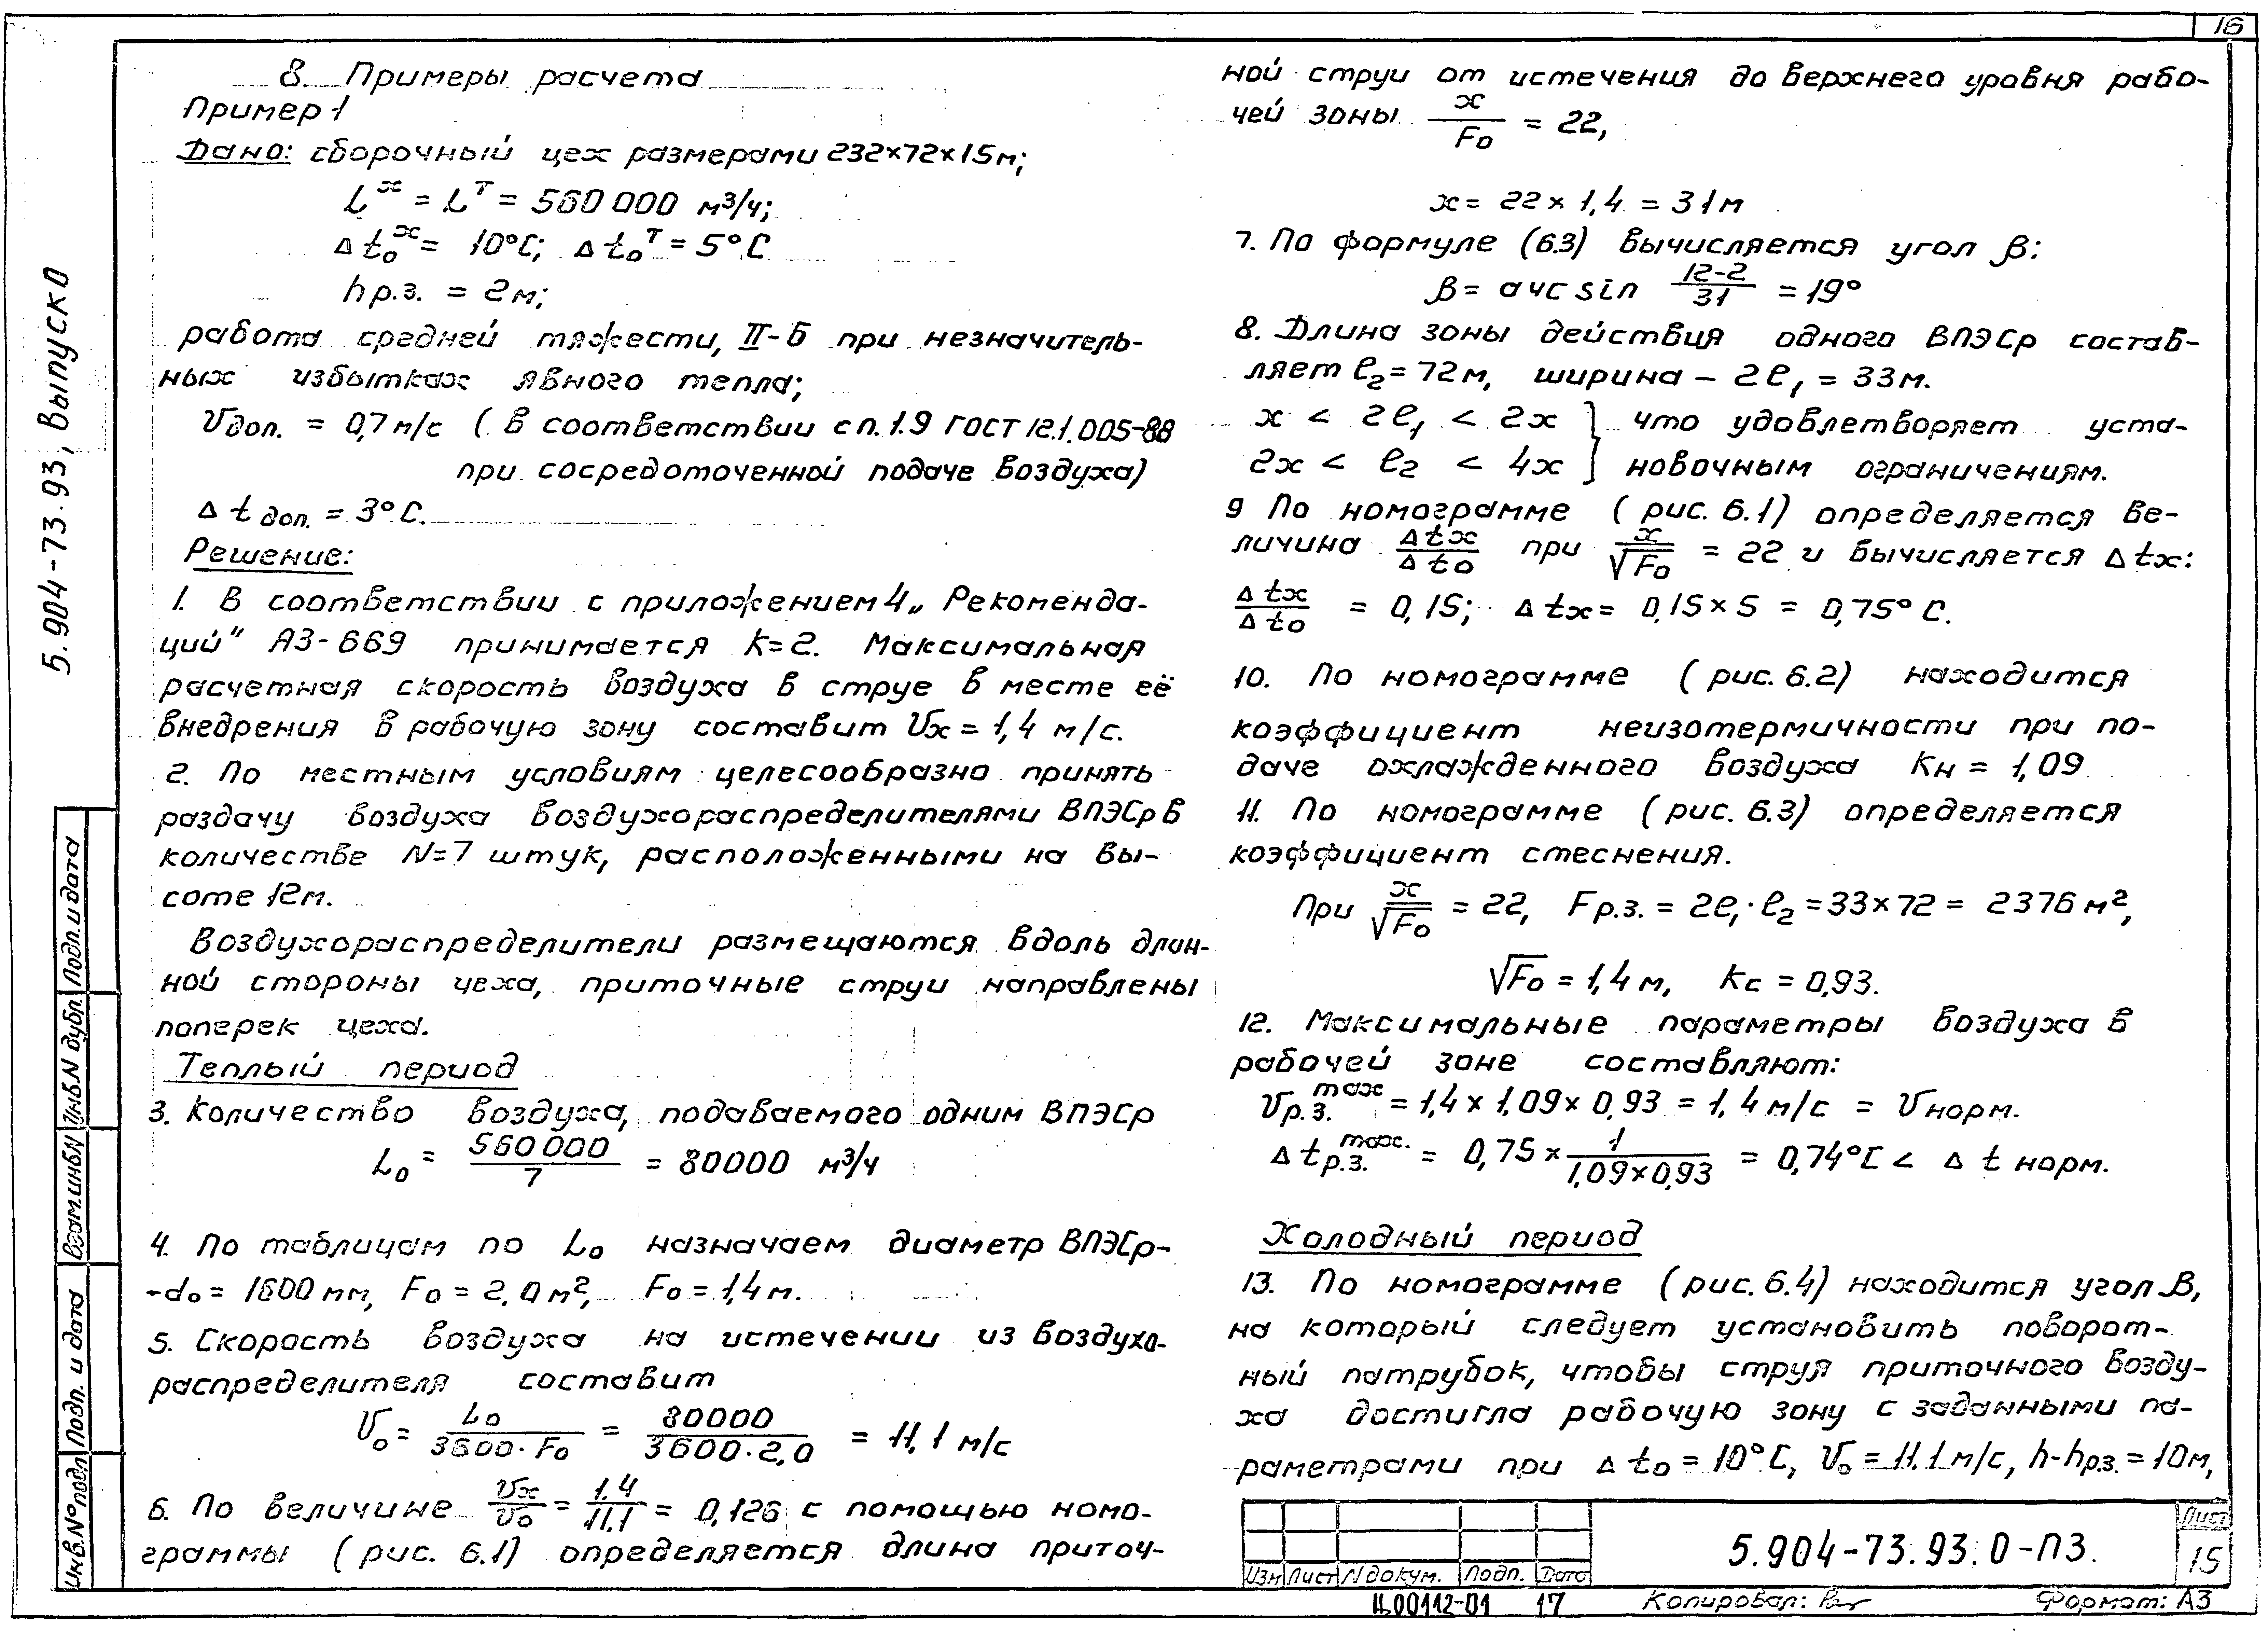 16
8. Примеры расчета
Пример 1
Дано: сборочный цех размерами 232×72×15м;
L^х = L^т = 560 000 м³/ч;
Δt₀^х = 10°С; Δt₀^т = 5°С
hр.з. = 2м;
работа средней тяжести, II-Б при незначитель-
ных избытках явного тепла;
Vдоп. = 0,7 м/с ( в соответствии с п.1.9 ГОСТ 12.1.005-88
при сосредоточенной подаче воздуха)
Δt доп. = 3°С.
Решение:
1. В соответствии с приложением 4 „Рекоменда-
ций" А3-669 принимается К=2. Максимальная
расчетная скорость воздуха в струе в месте её
внедрения в рабочую зону составит Vх = 1,4 м/с.
2. По местным условиям целесообразно принять
раздачу воздуха воздухораспределителями ВПЭСр в
количестве N=7 штук, расположенными на вы-
соте 12м.
Воздухораспределители размещаются вдоль длин-
ной стороны цеха, приточные струи направлены
поперек цеха.
Теплый период
3. Количество воздуха, подаваемого одним ВПЭСр
L₀ = 560 000 / 7 = 80000 м³/ч
4. По таблицам по L₀ назначаем диаметр ВПЭСр-
-d₀ = 1600 мм, F₀ = 2,0 м², F₀ = 1,4 м.
5. Скорость воздуха на истечении из воздухо-
распределителя составит
V₀ = L₀ / 3600·F₀ = 80000 / 3600·2,0 = 11,1 м/с
6. По величине Vх / V₀ = 1,4 / 11,1 = 0,126 с помощью номо-
граммы (рис. 6.1) определяется длина приточ-
ной струи от истечения до верхнего уровня рабо-
чей зоны х / F₀ = 22,
х = 22 × 1,4 = 31м
7. По формуле (6.3) вычисляется угол β:
β = arcsin 12-2 / 31 = 19°
8. Длина зоны действия одного ВПЭСр состав-
ляет ℓ₂ = 72м, ширина – 2ℓ₁ = 33м.
х < 2ℓ₁ < 2х } что удовлетворяет уста-
2х < ℓ₂ < 4х } новочным ограничениям.
9 По номограмме (рис. 6.1) определяется ве-
личина Δtх / Δt₀ при х / √F₀ = 22 и вычисляется Δtх:
Δtх / Δt₀ = 0,15; Δtх = 0,15 × 5 = 0,75°С.
10. По номограмме (рис. 6.2) находится
коэффициент неизотермичности при по-
даче охлажденного воздуха Кн = 1,09
11. По номограмме (рис. 6.3) определяется
коэффициент стеснения.
При х / √F₀ = 22, Fр.з. = 2ℓ₁·ℓ₂ = 33×72 = 2376 м²,
√F₀ = 1,4 м, Кс = 0,93.
12. Максимальные параметры воздуха в
рабочей зоне составляют:
Vр.з.^max = 1,4 × 1,09 × 0,93 = 1,4 м/с = Vнорм.
Δtр.з.^max. = 0,75 × 1 / 1,09×0,93 = 0,74°С < Δt норм.
Холодный период
13. По номограмме (рис. 6.4) находится угол β,
на который следует установить поворот-
ный патрубок, чтобы струя приточного возду-
ха достигла рабочую зону с заданными па-
раметрами при Δt₀ = 10°С, V₀ = 11,1 м/с, h-hр.з. = 10м,
5.904-73.93, Выпуск 0
Подп. и дата
Инв.N дубл.
Взам.инв.N
Подп. и дата
Инв.N° подл
Изм Лист N докум. Подп. Дата
5.904-73.93.0-ПЗ.
Лист
15
Ц00112-01 17
Копировал:
Формат: А3